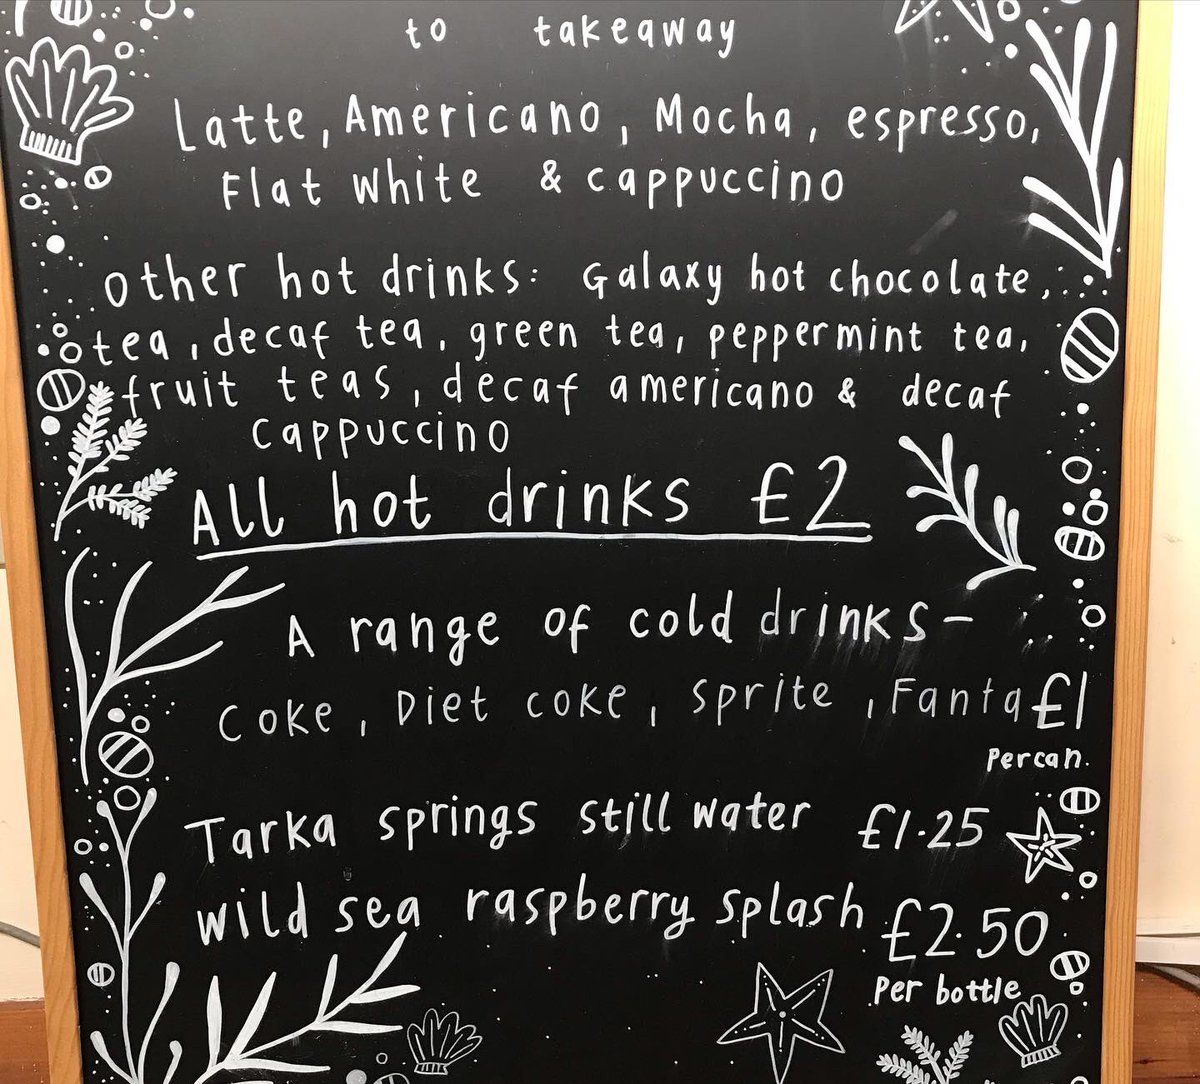 to takeaway
Latte, Americano, Mocha, espresso,
Flat white & cappuccino
Other hot drinks: Galaxy hot chocolate,
tea, decaf tea, green tea, peppermint tea,
fruit teas, decaf americano & decaf
cappuccino
All hot drinks £2
A range of cold drinks-
Coke, Diet coke, Sprite, Fanta £1
Per can.
Tarka springs still water £1.25
wild sea raspberry splash £2.50
Per bottle